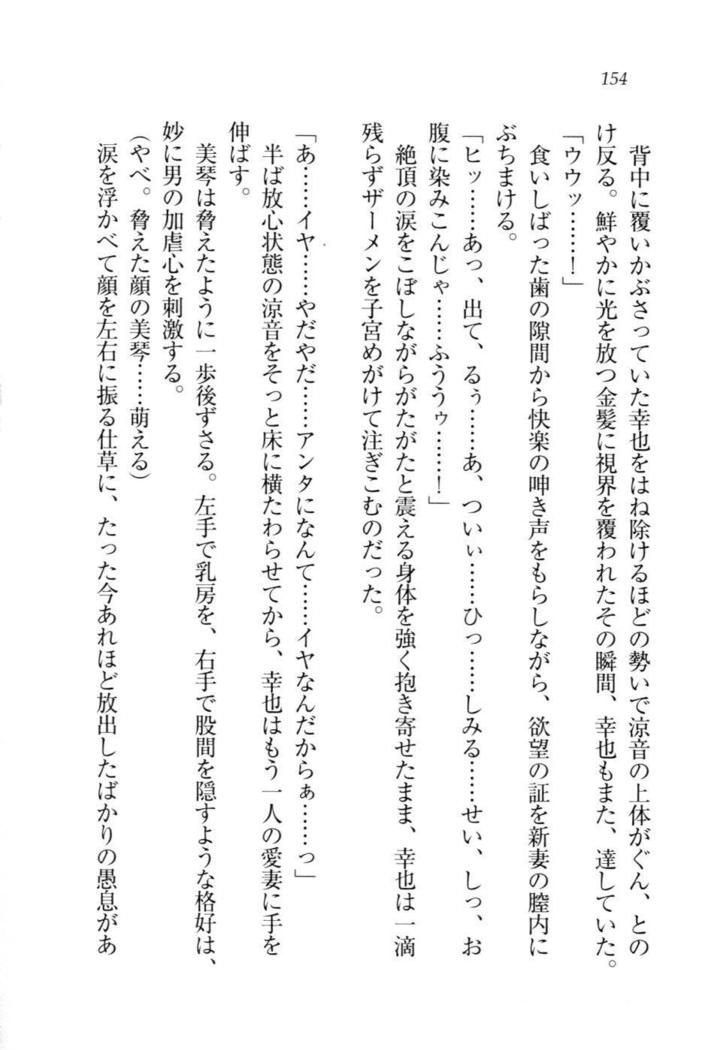 154
背中に覆いかぶさっていた幸也をはね除けるほどの勢いで涼音の上体がぐん、との
け反る。鮮やかに光を放つ金髪に視界を覆われたその瞬間、幸也もまた、達していた。
「ウウッ……！」
食いしばった歯の隙間から快楽の呻き声をもらしながら、欲望の証を新妻の膣内に
ぶちまける。
「ヒッ……あっ、出て、るぅ……あ、ついぃ……ひっ……しみる……せい、しっ、お
腹に染みこんじゃ……ふううゥ……！」
絶頂の涙をこぼしながらがたがたと震える身体を強く抱き寄せたまま、幸也は一滴
残らずザーメンを子宮めがけて注ぎこむのだった。
「あ……イヤ……やだやだ……アンタになんて……イヤなんだからぁ……っ」
半ば放心状態の涼音をそっと床に横たわらせてから、幸也はもう一人の愛妻に手を
伸ばす。
美琴は脅えたように一歩後ずさる。左手で乳房を、右手で股間を隠すような格好は、
妙に男の加虐心を刺激する。
（やべ。脅えた顔の美琴……萌える）
涙を浮かべて顔を左右に振る仕草に、たった今あれほど放出したばかりの愚息があ